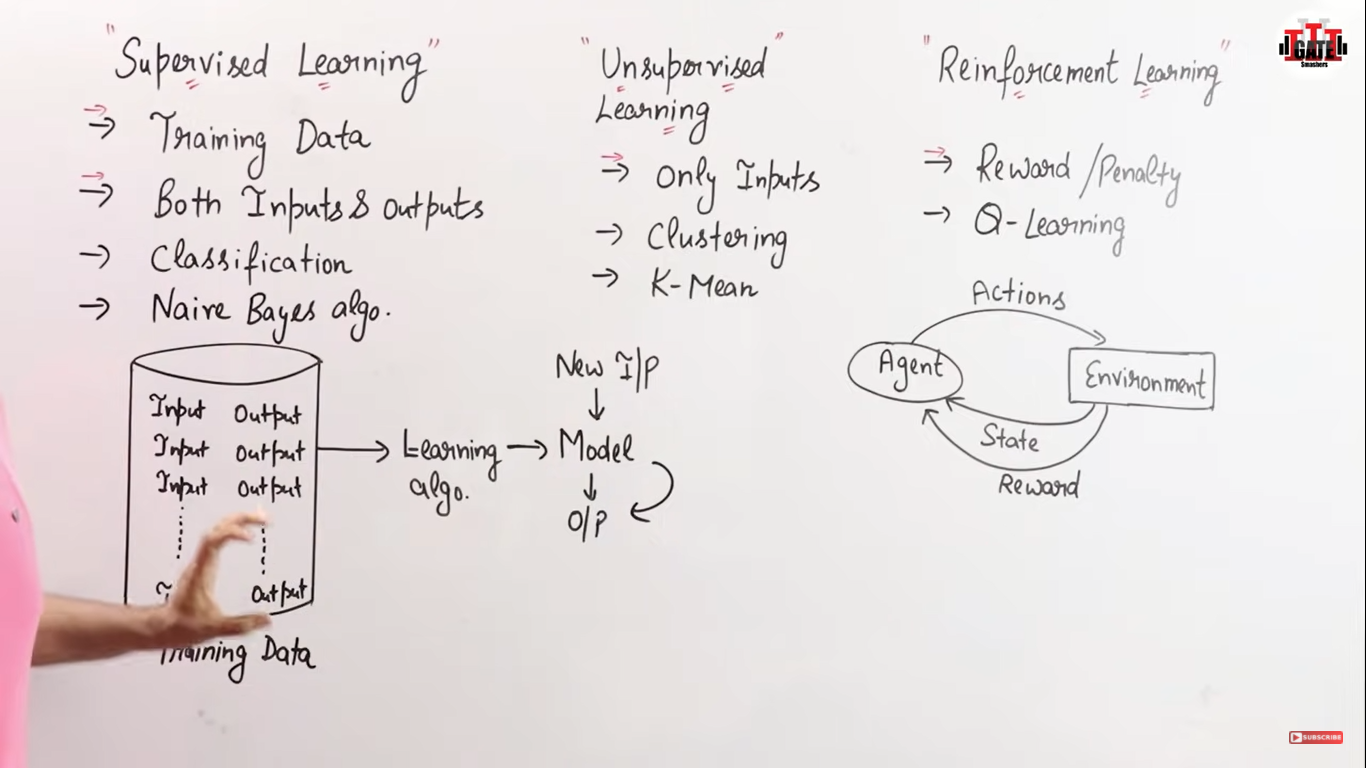 "Supervised Learning"
→ Training Data
→ Both Inputs & outputs
→ Classification
→ Naive Bayes algo.
Input Output
Input Output
Input Output
Output
Training Data
Learning
algo.
New I/P
Model
O/P
"Unsupervised"
Learning
→ Only Inputs
→ Clustering
→ K-Mean
"Reinforcement Learning"
→ Reward/Penalty
→ Q-Learning
Actions
Agent
Environment
State
Reward
GATE
Smashers
SUBSCRIBE